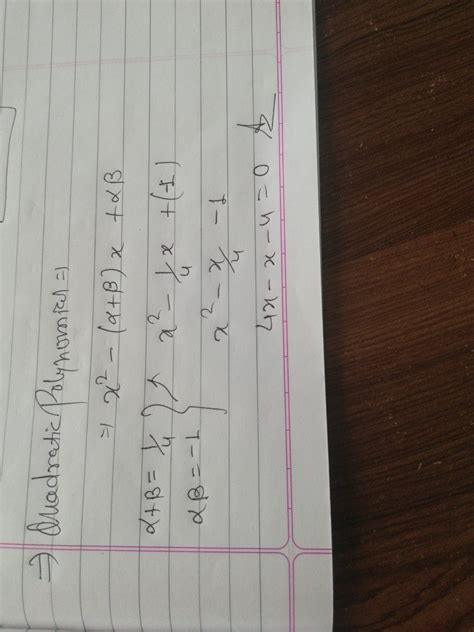 ⇒ Quadratic Polynomial ⇒
⇒ x² - (α+β)x + αβ
α+β = 1/4 } ↗ x² - 1/4 x + (-1)
αβ = -1
x² - x/4 - 1
4x - x - 4 = 0